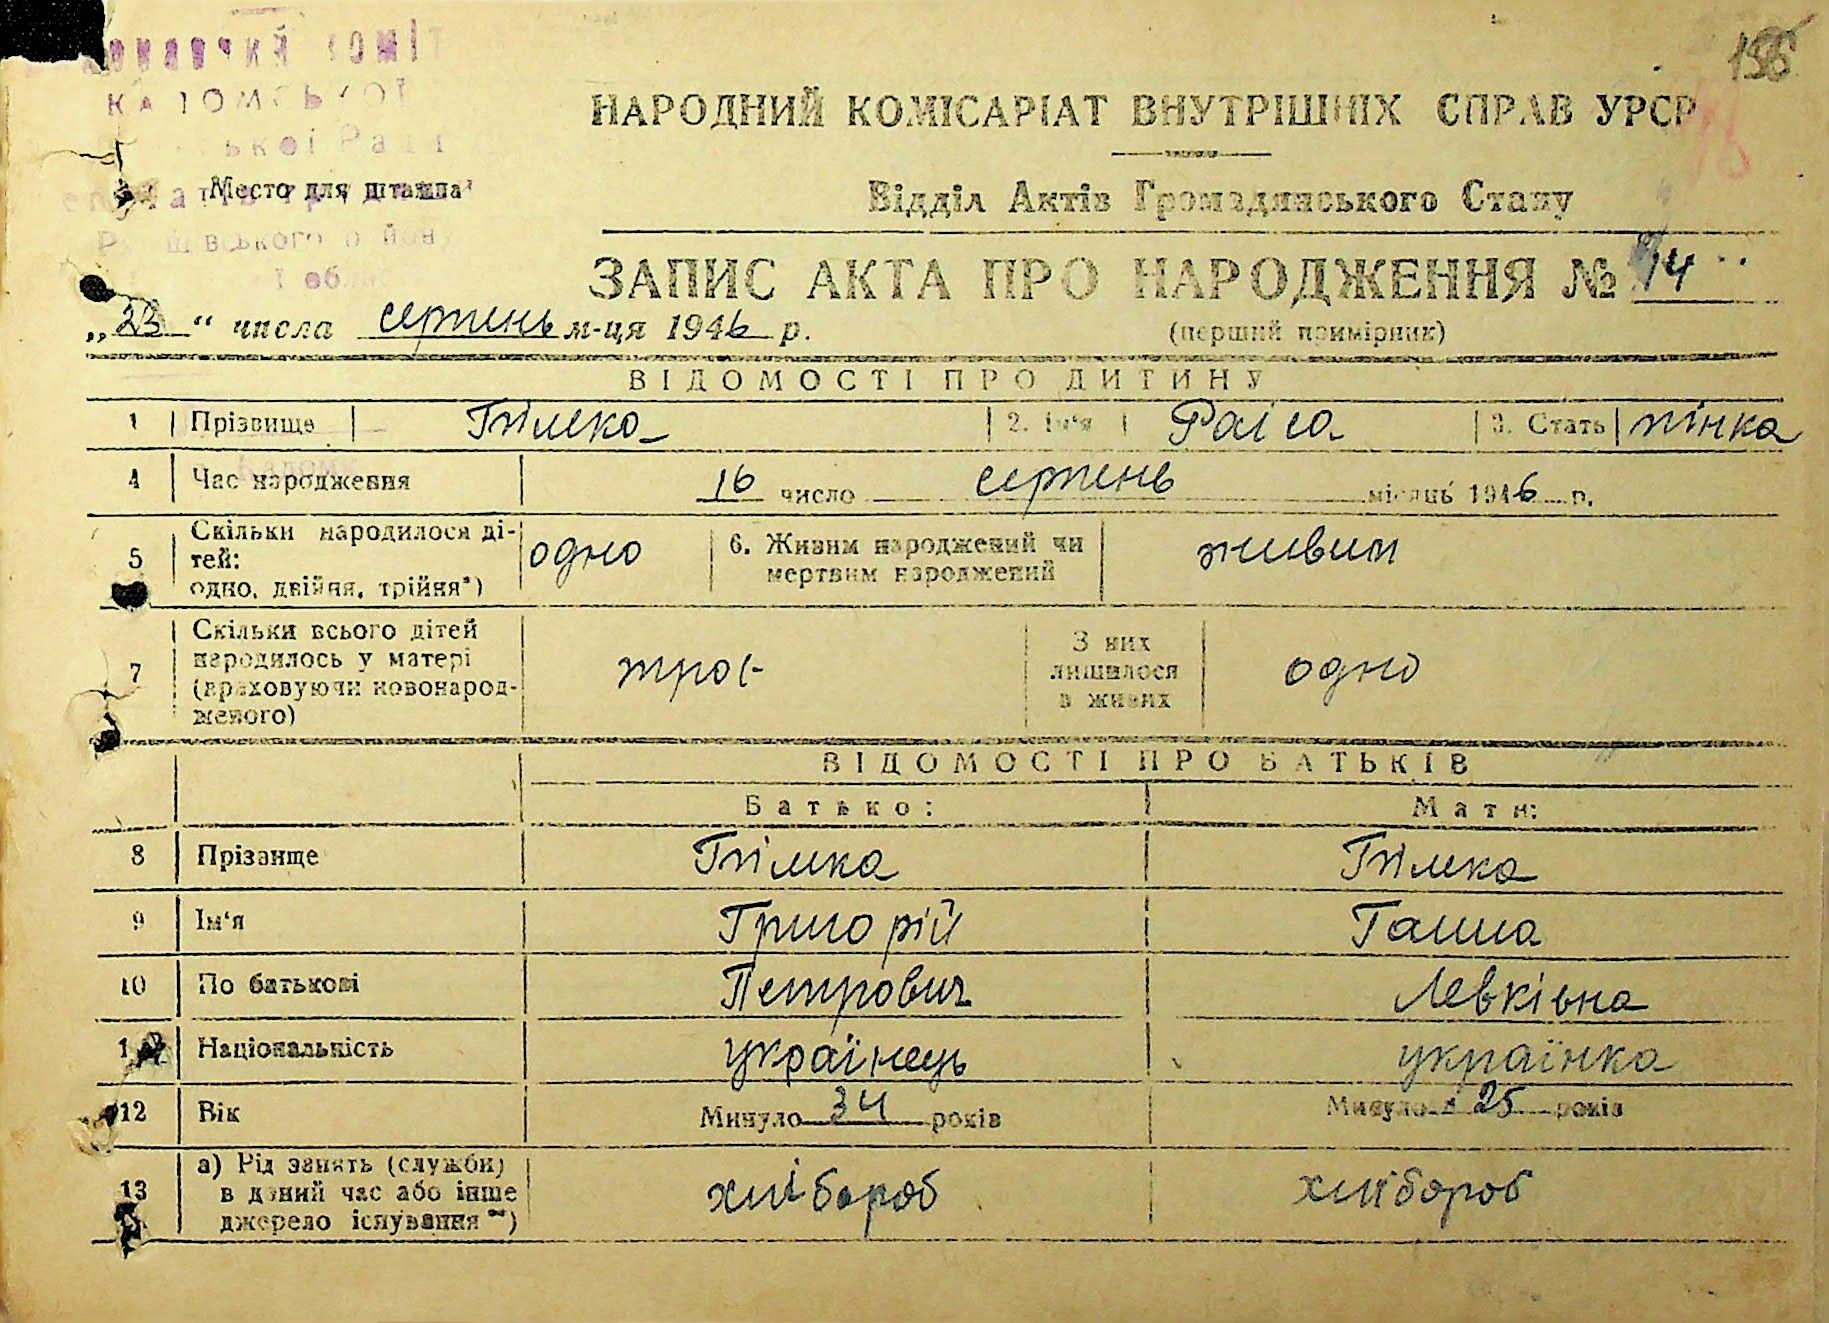 156
НАРОДНИЙ КОМІСАРІАТ ВНУТРІШНІХ СПРАВ УРСР
Место для штампа
Відділ Актів Громадянського Стану
ЗАПИС АКТА ПРО НАРОДЖЕННЯ № 14
„23“ числа серпень м-ця 1946 р. (перший примірник)
ВІДОМОСТІ ПРО ДИТИНУ
1 Прізвище 2. Ім‘я Раїса 3. Стать жінка
4 Час народження 16 число серпень місяць 1946 р.
5 Скільки народилося дітей: одно, двійня, трійня*) одно 6. Живим народжений чи мертвим народжений живим
7 Скільки всього дітей народилось у матері (враховуючи новонародженого) троє З них лишилося в живих одно
ВІДОМОСТІ ПРО БАТЬКІВ
Батько: Мати:
8 Прізвище
9 Ім‘я Григорій Ганна
10 По батькові Петрович Левківна
Національність українець українка
12 Вік Минуло 34 років Минуло 25 років
13 а) Рід занять (служби) в даний час або інше джерело існування**) хлібороб хлібороб